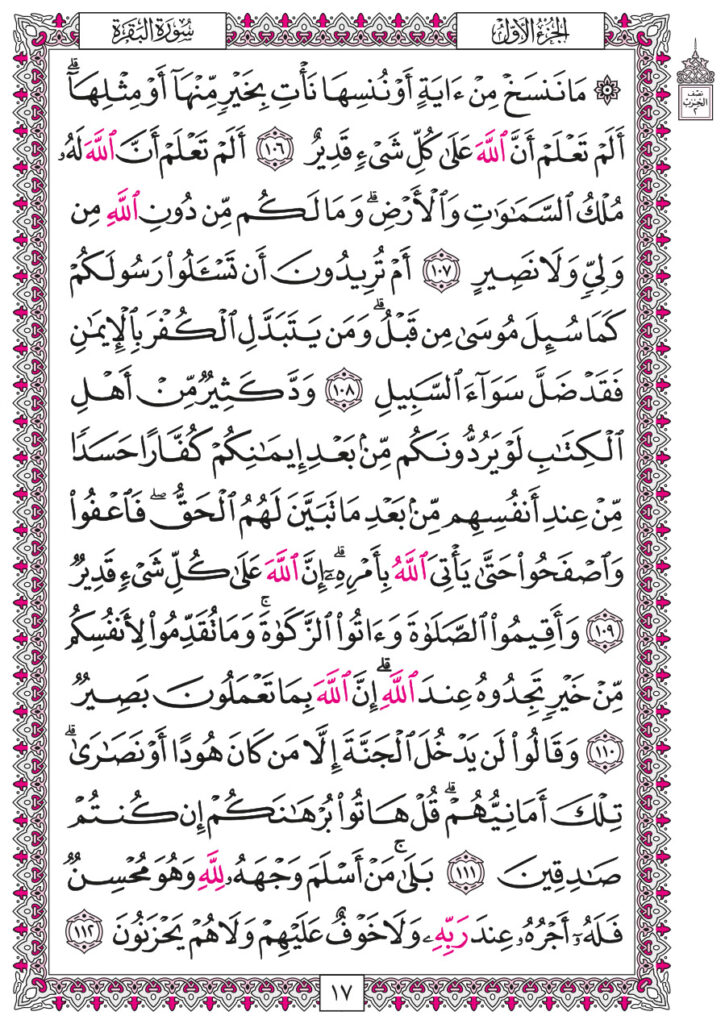 الجزء الأول
سورة البقرة
نصف
الحزب
٢
۞ مَا نَنسَخْ مِنْ ءَايَةٍ أَوْ نُنسِهَا نَأْتِ بِخَيْرٍ مِّنْهَآ أَوْ مِثْلِهَآۗ
أَلَمْ تَعْلَمْ أَنَّ ٱللَّهَ عَلَىٰ كُلِّ شَىْءٍ قَدِيرٌ ١٠٦ أَلَمْ تَعْلَمْ أَنَّ ٱللَّهَ لَهُۥ
مُلْكُ ٱلسَّمَٰوَٰتِ وَٱلْأَرْضِۗ وَمَا لَكُم مِّن دُونِ ٱللَّهِ مِن
وَلِىٍّ وَلَا نَصِيرٍ ١٠٧ أَمْ تُرِيدُونَ أَن تَسْـَٔلُوا۟ رَسُولَكُمْ
كَمَا سُئِلَ مُوسَىٰ مِن قَبْلُۗ وَمَن يَتَبَدَّلِ ٱلْكُفْرَ بِٱلْإِيمَٰنِ
فَقَدْ ضَلَّ سَوَآءَ ٱلسَّبِيلِ ١٠٨ وَدَّ كَثِيرٌ مِّنْ أَهْلِ
ٱلْكِتَٰبِ لَوْ يَرُدُّونَكُم مِّنۢ بَعْدِ إِيمَٰنِكُمْ كُفَّارًا حَسَدًا
مِّنْ عِندِ أَنفُسِهِم مِّنۢ بَعْدِ مَا تَبَيَّنَ لَهُمُ ٱلْحَقُّۖ فَٱعْفُوا۟
وَٱصْفَحُوا۟ حَتَّىٰ يَأْتِىَ ٱللَّهُ بِأَمْرِهِۦٓۗ إِنَّ ٱللَّهَ عَلَىٰ كُلِّ شَىْءٍ قَدِيرٌ
١٠٩ وَأَقِيمُوا۟ ٱلصَّلَوٰةَ وَءَاتُوا۟ ٱلزَّكَوٰةَۚ وَمَا تُقَدِّمُوا۟ لِأَنفُسِكُم
مِّنْ خَيْرٍ تَجِدُوهُ عِندَ ٱللَّهِۗ إِنَّ ٱللَّهَ بِمَا تَعْمَلُونَ بَصِيرٌ
١١٠ وَقَالُوا۟ لَن يَدْخُلَ ٱلْجَنَّةَ إِلَّا مَن كَانَ هُودًا أَوْ نَصَٰرَىٰۗ
تِلْكَ أَمَانِيُّهُمْۗ قُلْ هَاتُوا۟ بُرْهَٰنَكُمْ إِن كُنتُمْ
صَٰدِقِينَ ١١١ بَلَىٰۚ مَنْ أَسْلَمَ وَجْهَهُۥ لِلَّهِ وَهُوَ مُحْسِنٌ
فَلَهُۥٓ أَجْرُهُۥ عِندَ رَبِّهِۦ وَلَا خَوْفٌ عَلَيْهِمْ وَلَا هُمْ يَحْزَنُونَ ١١٢
١٧